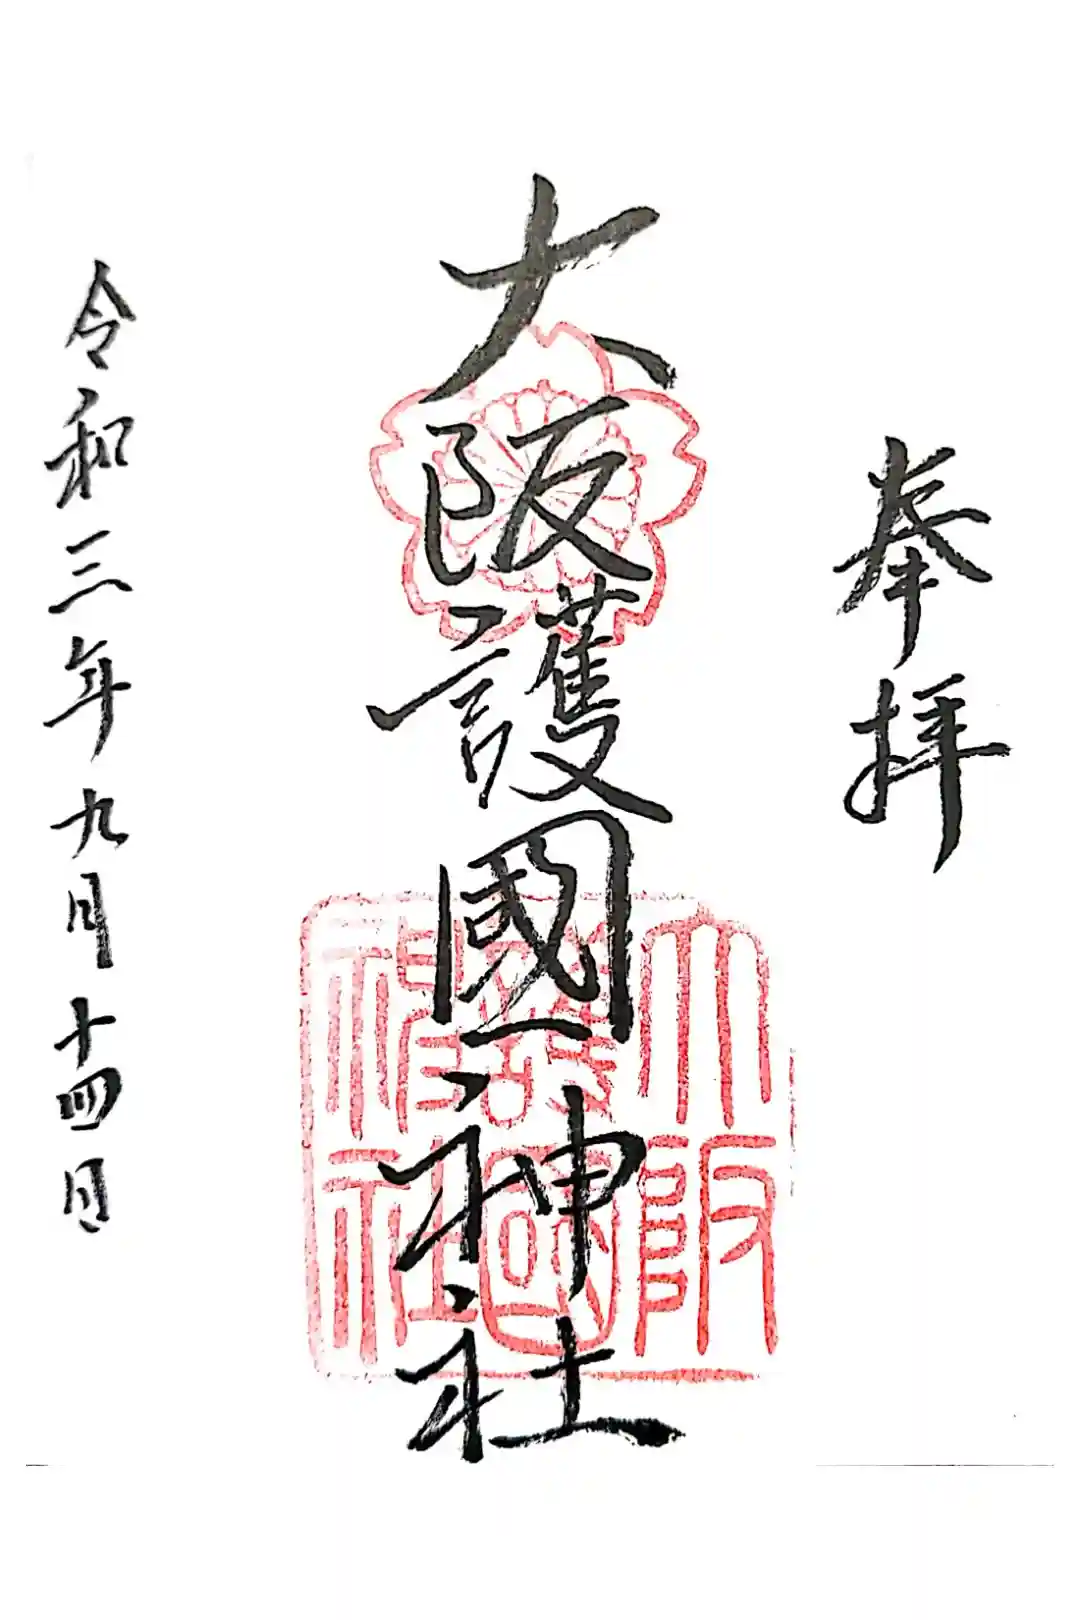 奉拝
大阪護國神社
大阪
護國
神社
令和三年九月十四日